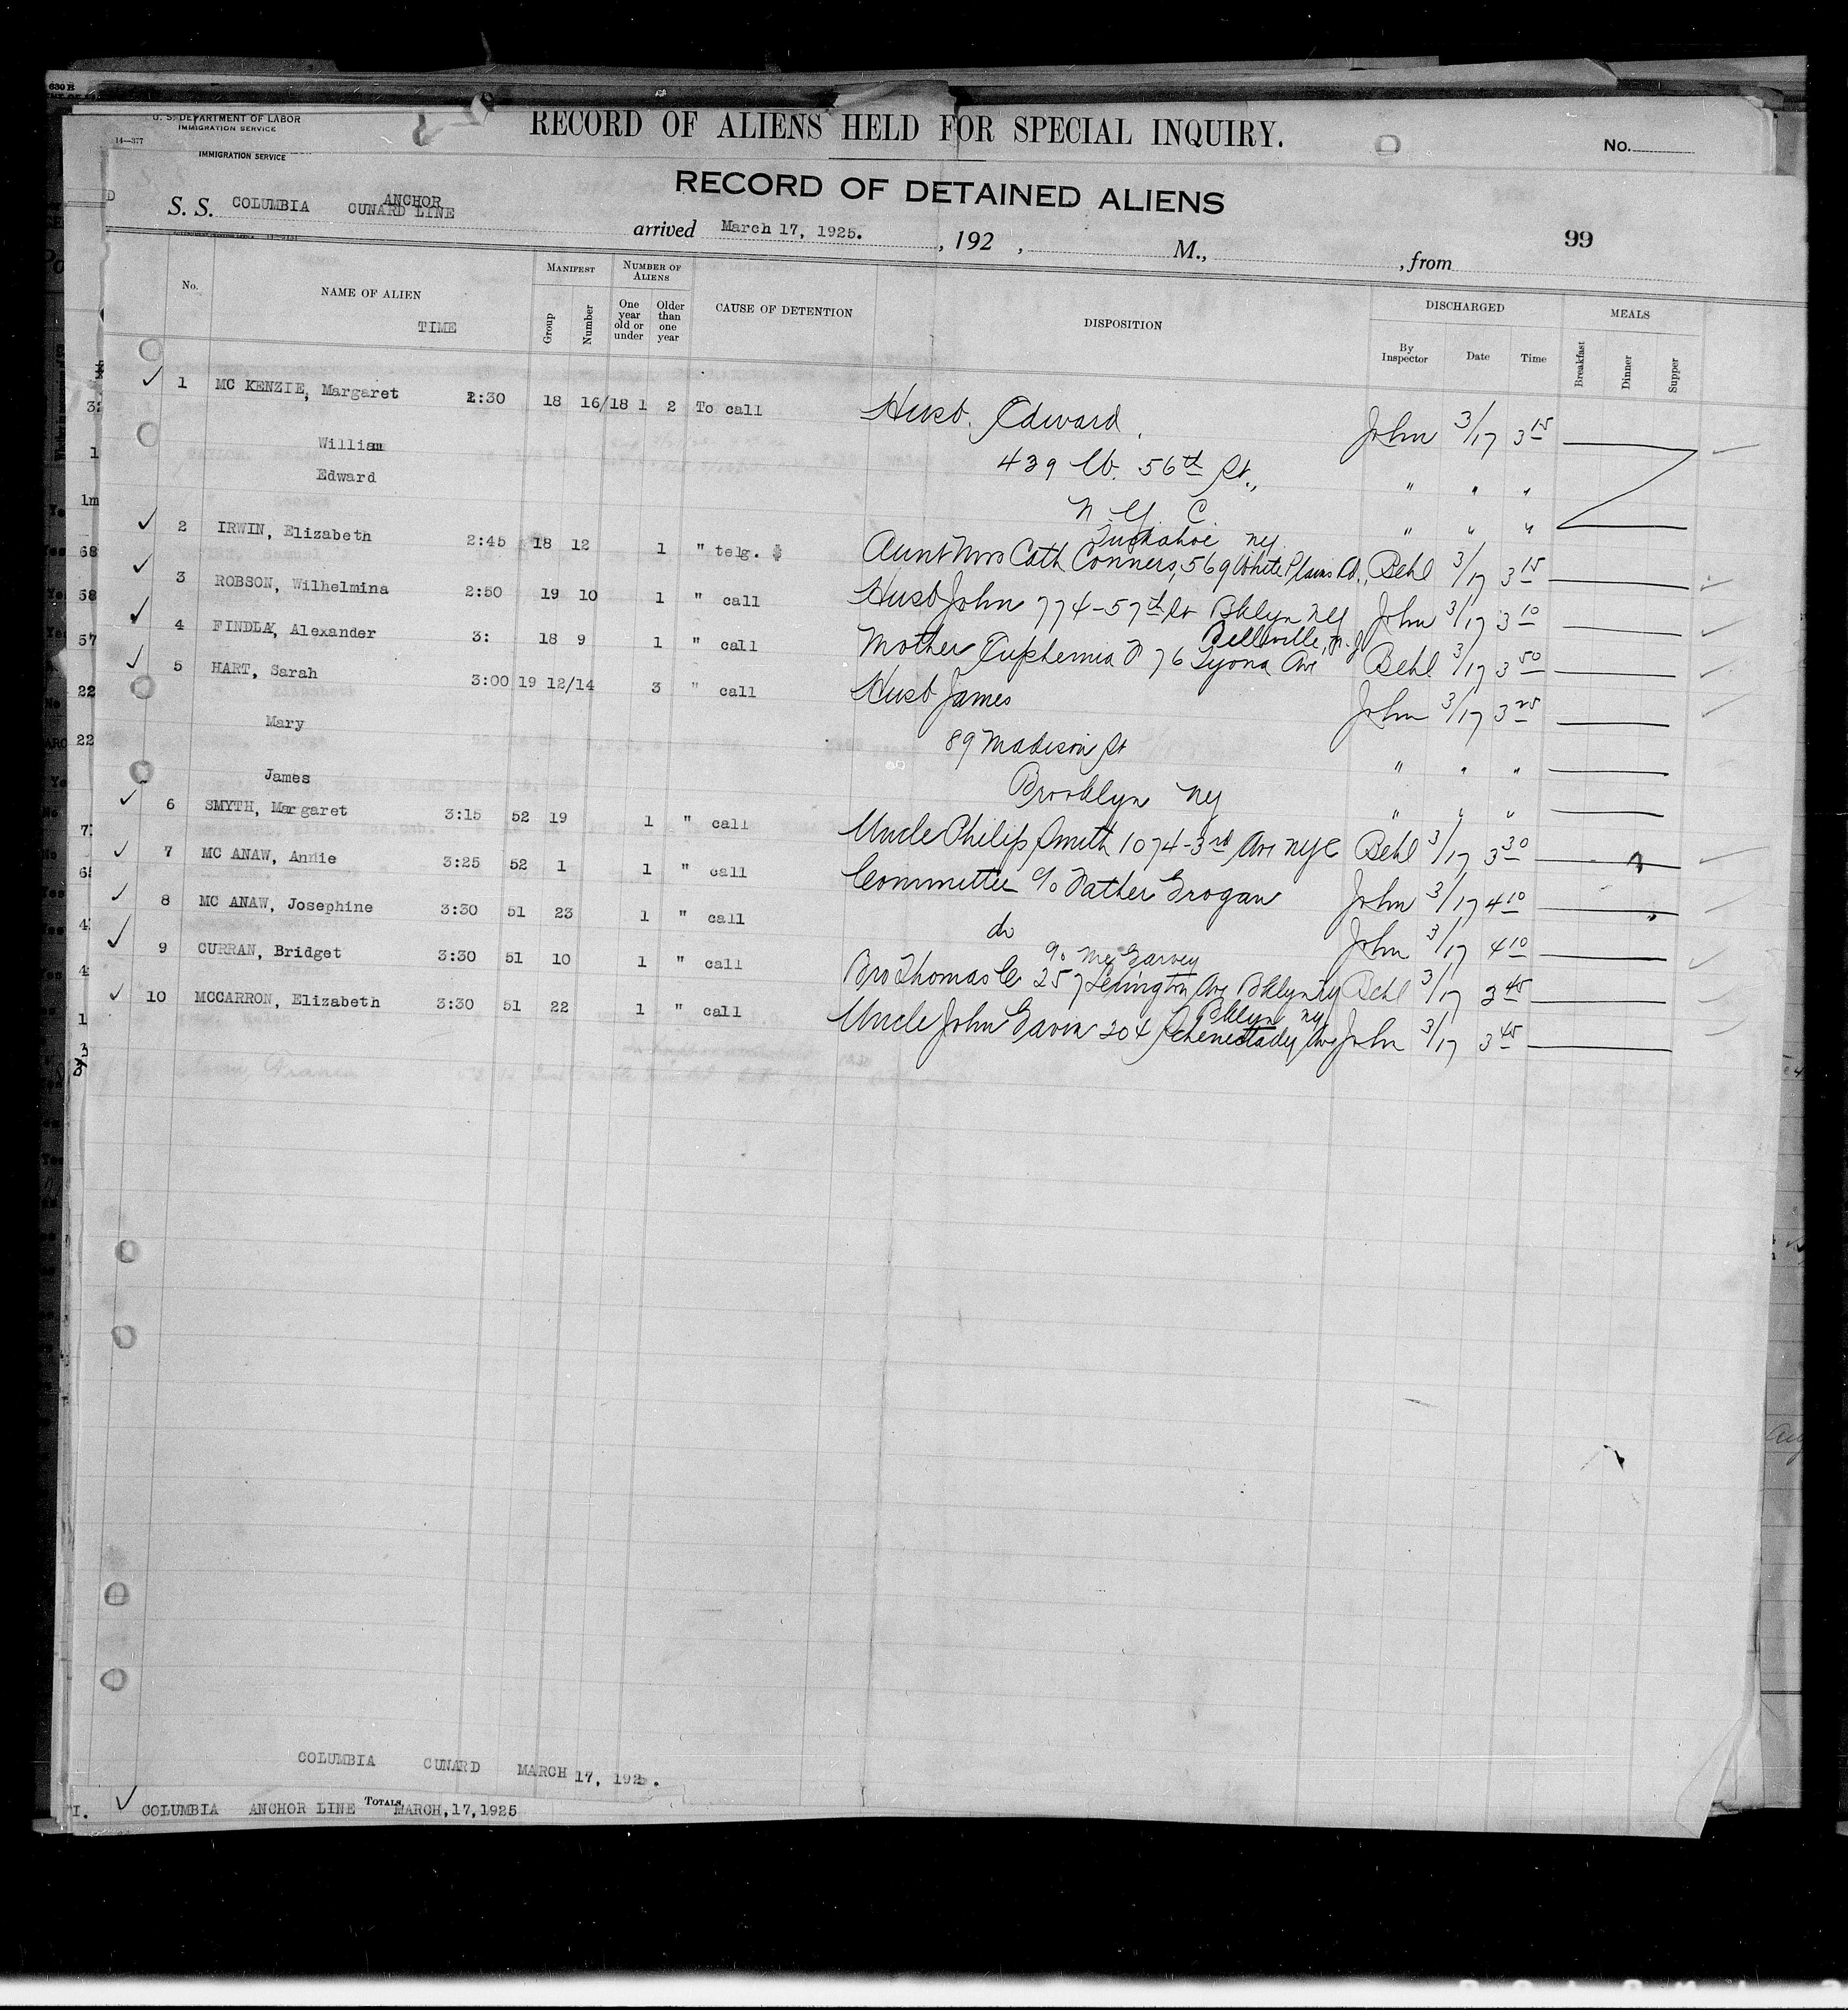 U. S. DEPARTMENT OF LABOR
IMMIGRATION SERVICE
14—377
RECORD OF ALIENS HELD FOR SPECIAL INQUIRY.
No.
IMMIGRATION SERVICE
RECORD OF DETAINED ALIENS
S. S. COLUMBIA ANCHOR CUNARD LINE arrived March 17, 1925. , 192 , M., , from
99
No. NAME OF ALIEN TIME MANIFEST Group Number NUMBER OF ALIENS One year old or under Older than one year CAUSE OF DETENTION DISPOSITION DISCHARGED By Inspector Date Time MEALS Breakfast Dinner Supper
1 MC KENZIE, Margaret 2:30 18 16/18 1 2 To call Husb. Edward John 3/17 3 15
William 439 W. 56th St., " " "
Edward N. Y. C " " "
2 IRWIN, Elizabeth 2:45 18 12 1 " telg. Aunt Mrs Cath Conners, 569 White Plains Rd., Tuckahoe NY Behl 3/17 3 15
3 ROBSON, Wilhelmina 2:50 19 10 1 " call Husb John 774-57th St Bklyn NY John 3/17 3 10
4 FINDLAY, Alexander 3: 18 9 1 " call Mother Euphemia F 76 Lyona Ave Belleville, N.J. Behl 3/17 3 50
5 HART, Sarah 3:00 19 12/14 3 " call Husb James John 3/17 3 25
Mary 89 Madison St " " "
James Brooklyn NY " " "
6 SMYTH, Margaret 3:15 52 19 1 " call Uncle Philip Smith 1074-3rd Ave NYC Behl 3/17 3 30
7 MC ANAW, Annie 3:25 52 1 1 " call Committee c/o Father Grogan John 3/17 4 10
8 MC ANAW, Josephine 3:30 51 23 1 " call do John 3/17 4 10
9 CURRAN, Bridget 3:30 51 10 1 " call Bro Thomas C c/o McGarvey 257 Lexington Ave Bklyn NY Behl 3/17 3 45
10 MCCARRON, Elizabeth 3:30 51 22 1 " call Uncle John Gavin 204 Schenectady Ave Bklyn NY John 3/17 3 45
COLUMBIA CUNARD MARCH 17, 192
COLUMBIA ANCHOR LINE TOTALS MARCH,17,1925